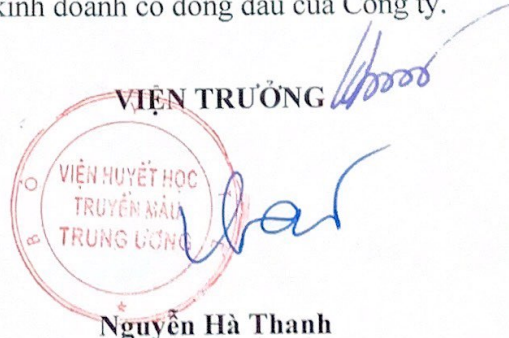 kinh doanh có đóng dấu của Công ty.
VIỆN TRƯỞNG
VIỆN HUYẾT HỌC
TRUYỀN MÁU
TRUNG ƯƠNG
Nguyễn Hà Thanh